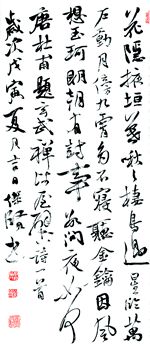 花隱掖垣暮啾啾棲鳥過星臨萬
戶動月傍九霄多不寢聽金鑰因風
想玉珂明朝有封事數問夜如何
唐杜甫題玄武禪師屋壁詩一首
歲次戊寅夏月吉日書